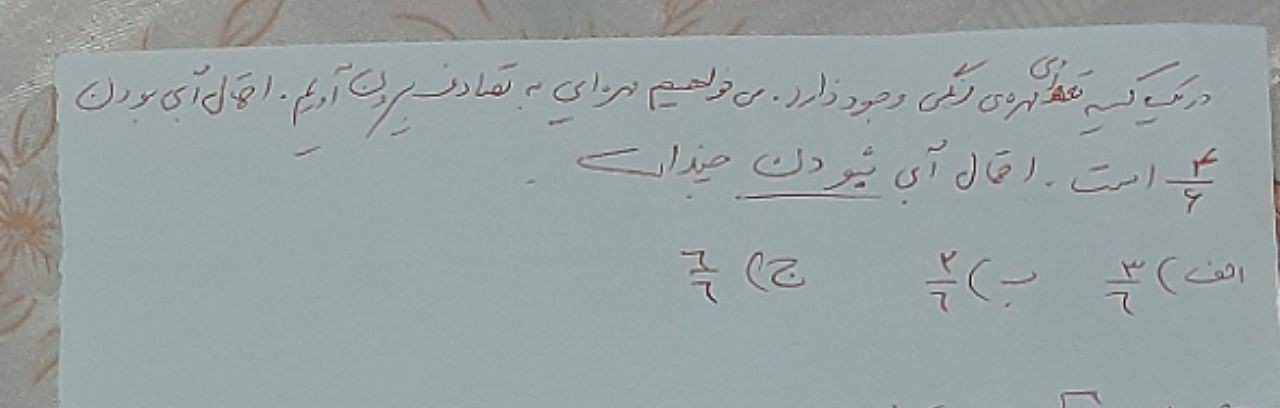 در یک کیسه تعدادی مهره‌ی رنگی وجود دارد. می خواهیم مهره‌ای به تصادف بیرون آوریم. احتمال آبی بودن
۴/۶ است. احتمال آبی نبودن چند است
الف) ۳/۶ ب) ۲/۶ ج) ۶/۶